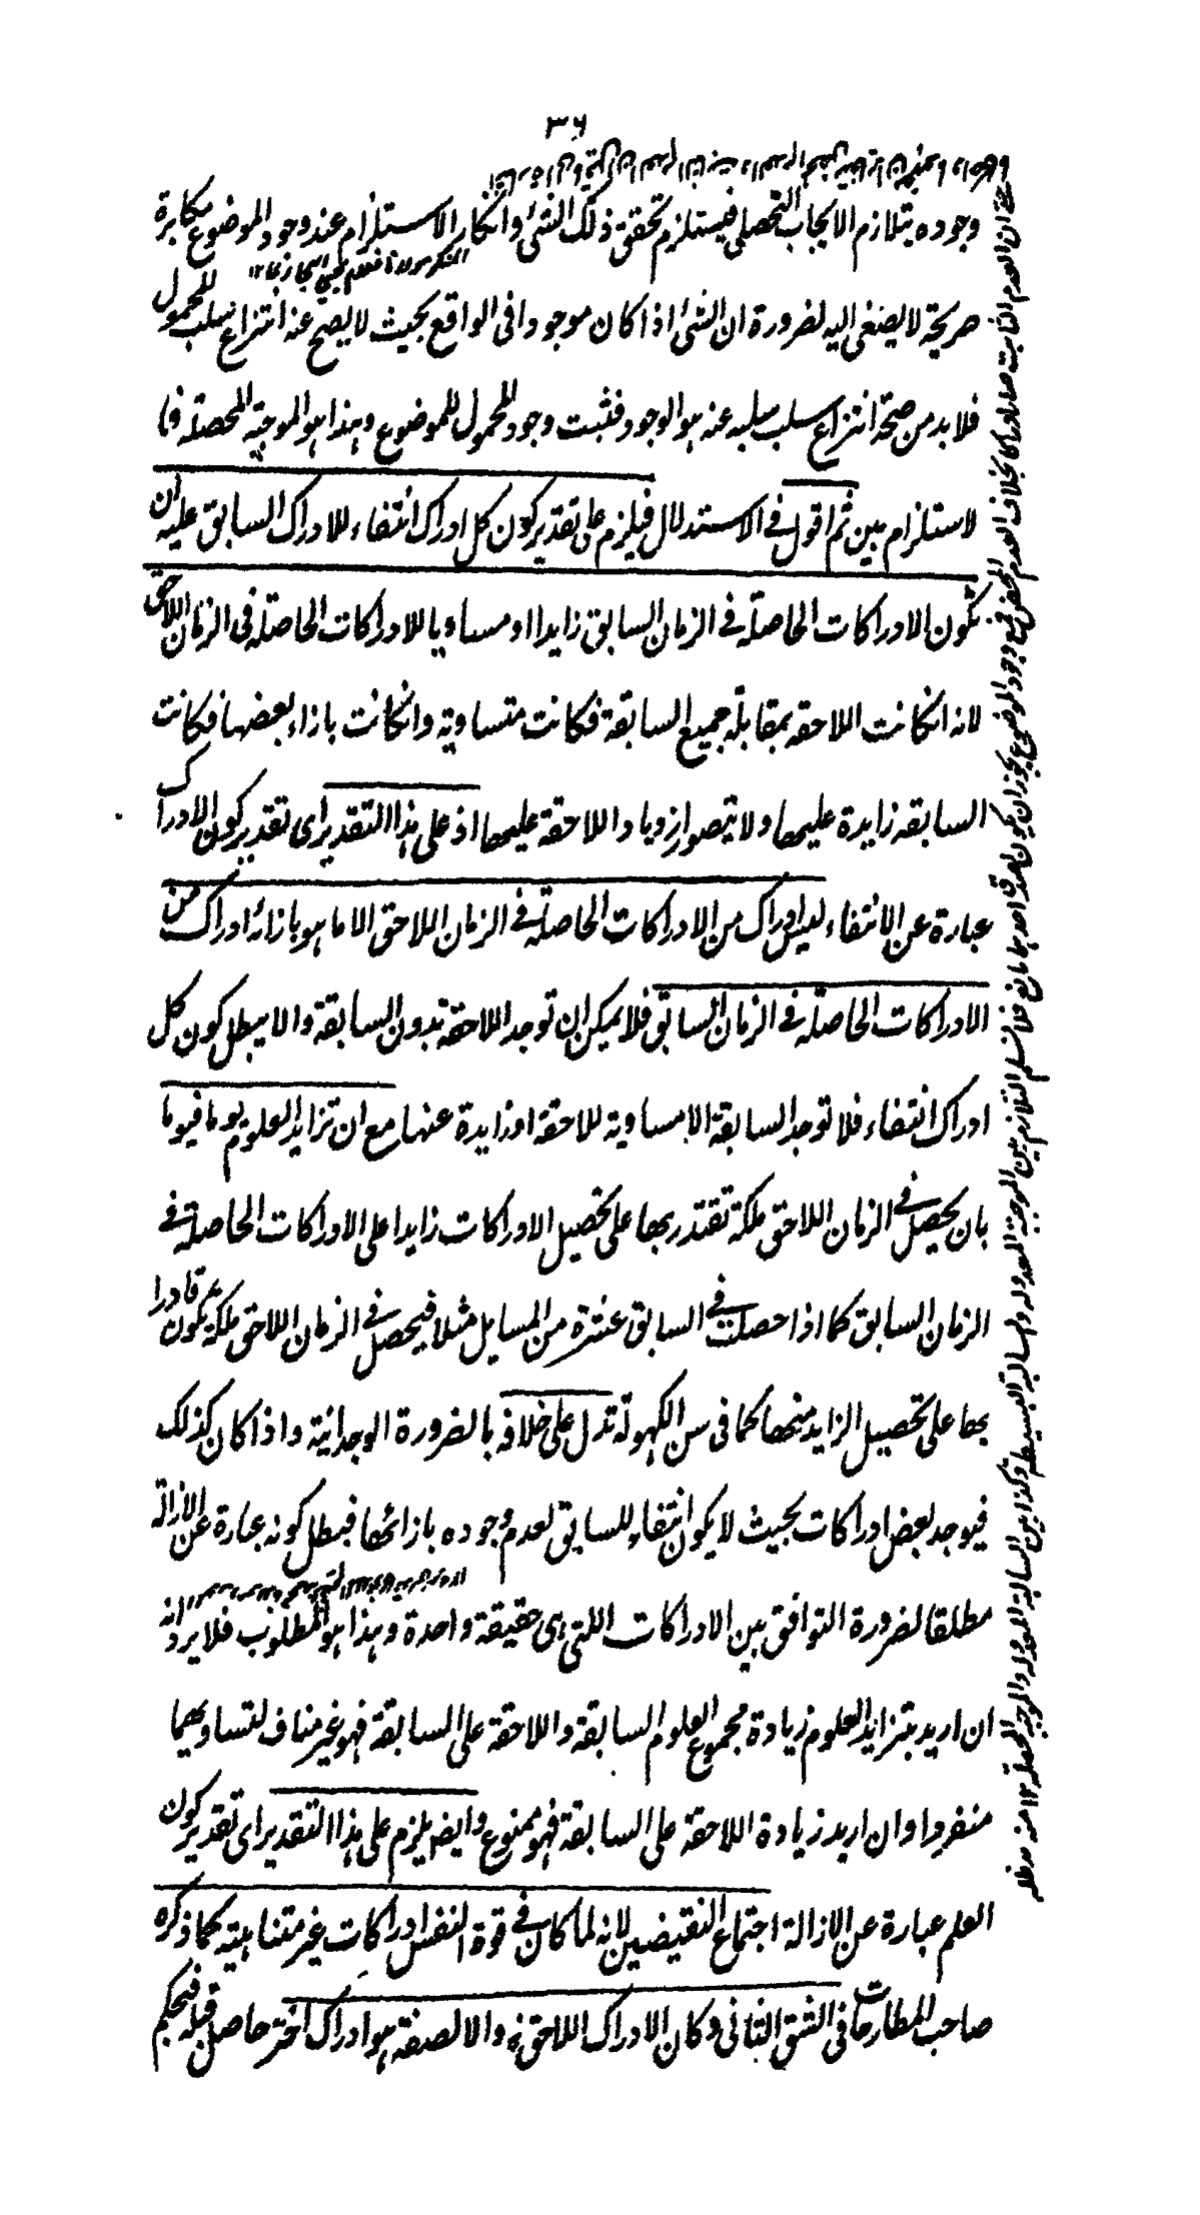 ٣٦
وجوده يتلازم الايجاب التحصلى فيستلزم تحقق ذلك الشئ وانكار الاستلزام عند وجود الموضوع مكابرة
صريحة لا يصغى اليه لضرورة ان الشئ اذا كان موجودا فى الواقع بحيث لا يصح عنه انتزاع سلب المحمول
فلا بد من صحة انتزاع سلب سلبه عنه هو الوجود فثبت وجود المحمول للموضوع وهذا هو الموجبة المحصلة فا
لاستلزام بين ثم اقول فى الاستدلال فيلزم على تقدير كون كل ادراك انتفاء للادراك السابق عليه ان
تكون الادراكات الحاصلة فى الزمان السابق زايدا او مساويا للادراكات الحاصلة فى الزمان اللاحق
لانه انكانت اللاحقه بمقابلة جميع السابقة فكانت متساوية وانكانت بازاء بعضها فكانت
السابقه زايدة عليها ولا يتصور ازدياد اللاحقة عليها اذ على هذا التقدير اى تقدير كون الادراك
عبارة عن الانتفاء ليس ادراك من الادراكات الحاصلة فى الزمان اللاحق الا ما هو بازائه ادراك من
الادراكات الحاصلة فى الزمان السابق فلا يمكن ان توجد اللاحقة بدون السابقة والا يبطل كون كل
ادراك انتفاء فلا توجد السابقة الا مساوية للاحقة او زايدة عنها مع ان تزايد العلوم يوما فيوما
بان يحصل فى الزمان اللاحق ملكة تقتدر بها على تحصيل الادراكات زايدا على الادراكات الحاصلة فى
الزمان السابق كما اذا حصلت فى السابق عشرة من المسايل مثلا فيحصل فى الزمان اللاحق ملكة يكون قادرا
بها على تحصيل الزايد منها كما فى سن الكهولة تدل على خلافه بالضرورة الوجدانية واذا كان كذلك
فيوجد بعض ادراكات بحيث لا يكون انتفاء للسابق لعدم وجوده بازائها فيبطل كونه عبارة عن الازالة
مطلقا لضرورة التوافق بين الادراكات اللتى هى حقيقة واحدة وهذا هو المطلوب فلا يرد انه
ان اريد بتزايد العلوم زيادة مجموع العلوم السابقة واللاحقة على السابقة فهو غير مناف لتساويهما
منفردا وان اريد زيادة اللاحقة على السابقة فهو ممنوع وايض يلزم على هذا التقدير اى تقدير كون
العلم عبارة عن الازالة اجتماع النقيضين لانه لما كان فى قوة النفس ادراكات غير متناهية كما ذكره
صاحب المطارحات فى الشق الثانى وكان الادراك اللاحق زوالا لصفة هو ادراك آخر حاصل قبله فيحكم
ان العدم الثابت صار ادراكا بخلاف العدم المحض وجود الموضوع يجوز ان يكون صدق احدهما فلا نسلم التلازم بين الموجبة المعدولة والسالبة البسيطة وكذا بين السالبة المعدولة والموجبة المحصلة ١٢ منه مد ظله